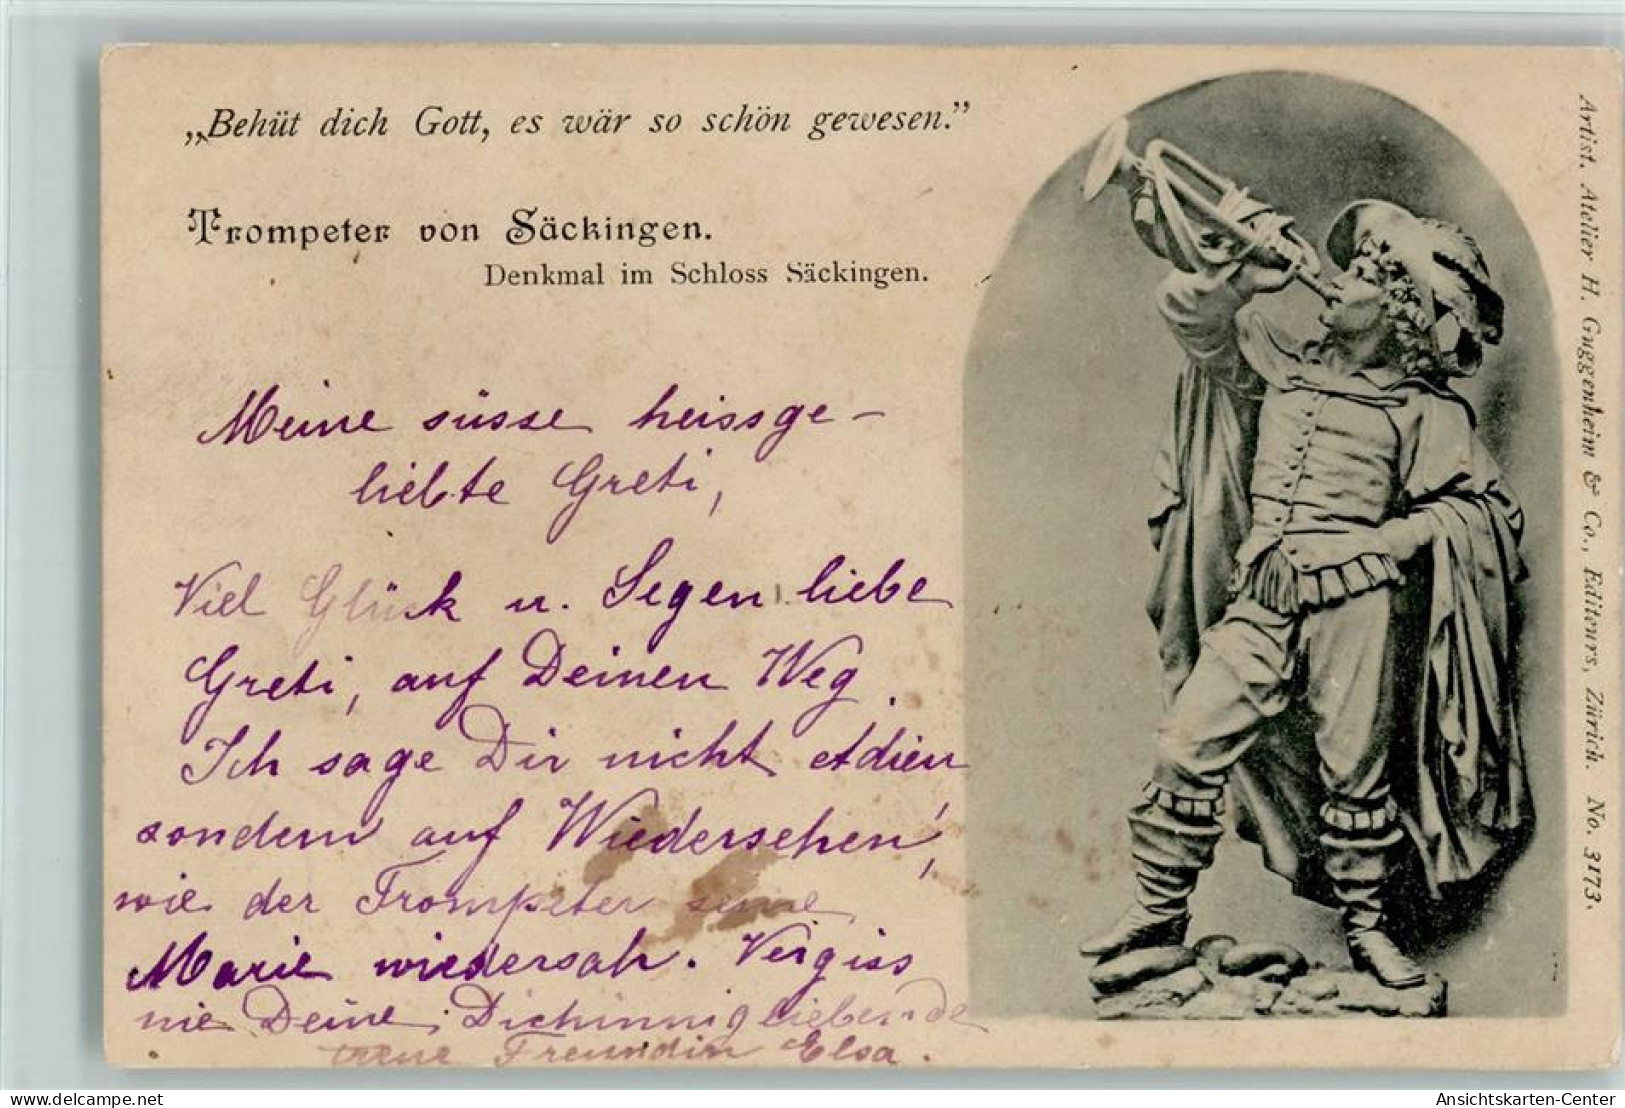 „Behüt dich Gott, es wär so schön gewesen.”
Trompeter von Säckingen.
Denkmal im Schloss Säckingen.
Meine süsse heissge-
liebte Greti,
Viel Glück u. Segen liebe
Greti, auf Deinen Weg.
Ich sage Dir nicht Adieu
sondern auf Wiedersehen,
wie der Trompeter seine
Marie wiedersah. Vergiss
nie Deine, Dichinnigliebende
treue Freundin Elsa.
Artist. Atelier H. Guggenheim & Co., Editeurs, Zürich. No. 3173.
delcampe.net
Ansichtskarten-Center